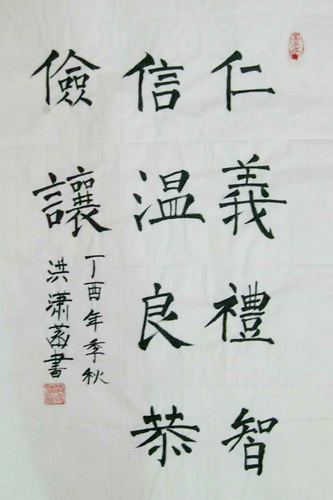 仁義禮智
信温良恭
儉讓
丁酉年季秋
洪瀟䓤書